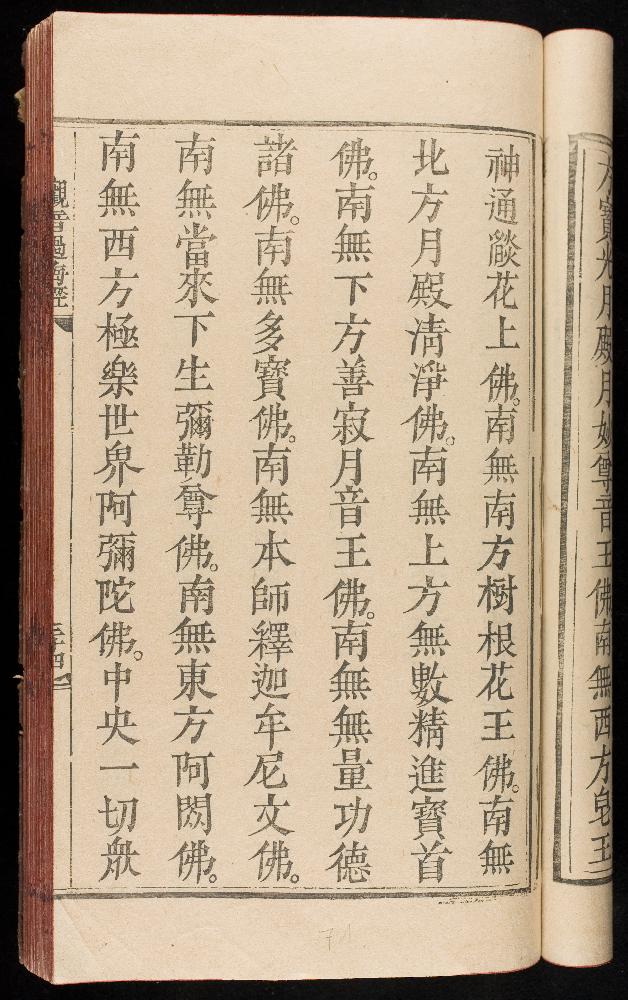 方寶光月殿月妙尊音王佛南無西方皂王
神通燄花上佛。南無南方樹根花王佛。南無
北方月殿清淨佛。南無上方無數精進寶首
佛。南無下方善寂月音王佛。南無無量功德
諸佛。南無多寶佛。南無本師釋迦牟尼文佛。
南無當來下生彌勒尊佛。南無東方阿閦佛。
南無西方極樂世界阿彌陀佛。中央一切眾
觀音過海經
三十四
71